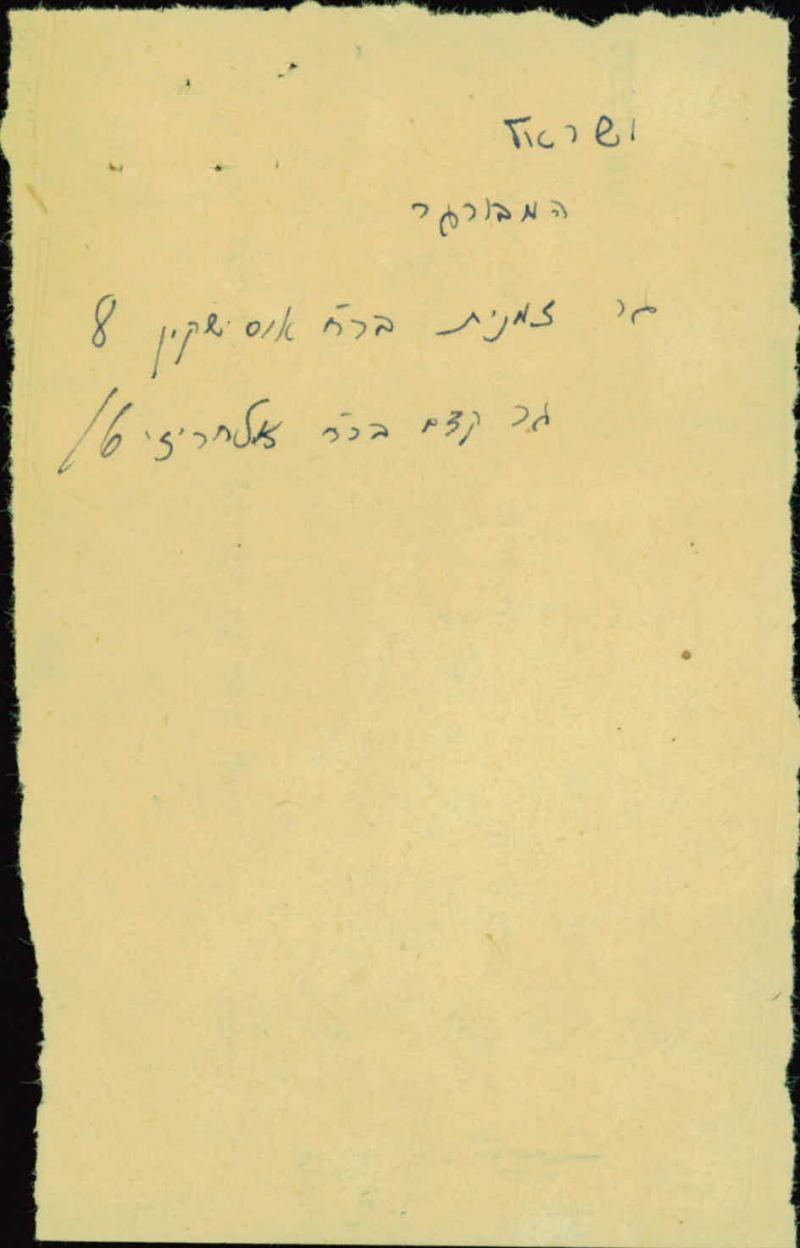 המבורגר
גר זמנית ברח' אוסישקין 8
גר קדם ברח' אלחריזי 6/